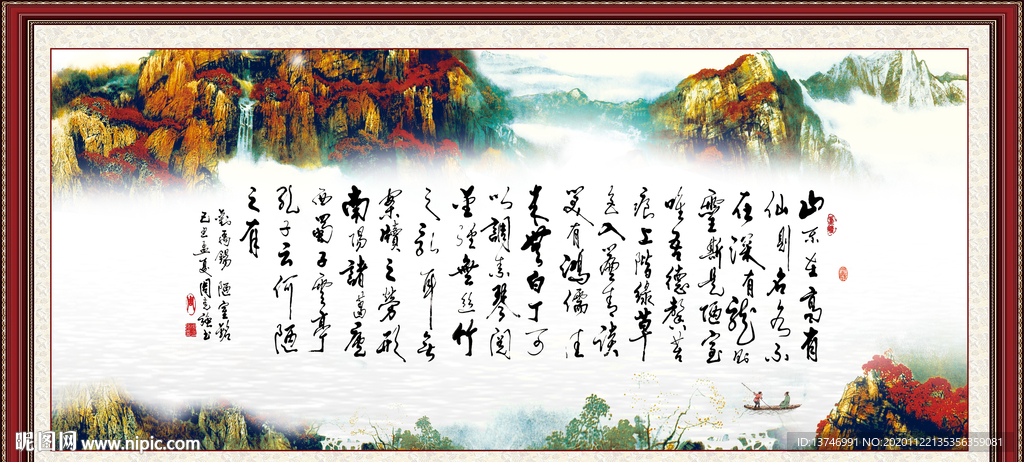 山不在高有
仙則名水不
在深有龍則
靈斯是陋室
唯吾德馨苔
痕上階緑草
色入簾青談
笑有鴻儒往
來無白丁可
以調素琴閱
金經無絲竹
之亂耳無
案牘之勞形
南陽諸葛廬
西蜀子雲亭
孔子云何陋
之有
劉禹錫 陋室銘
昵图网 www.nipic.com
ID:13746991 NO:20201122135356359081